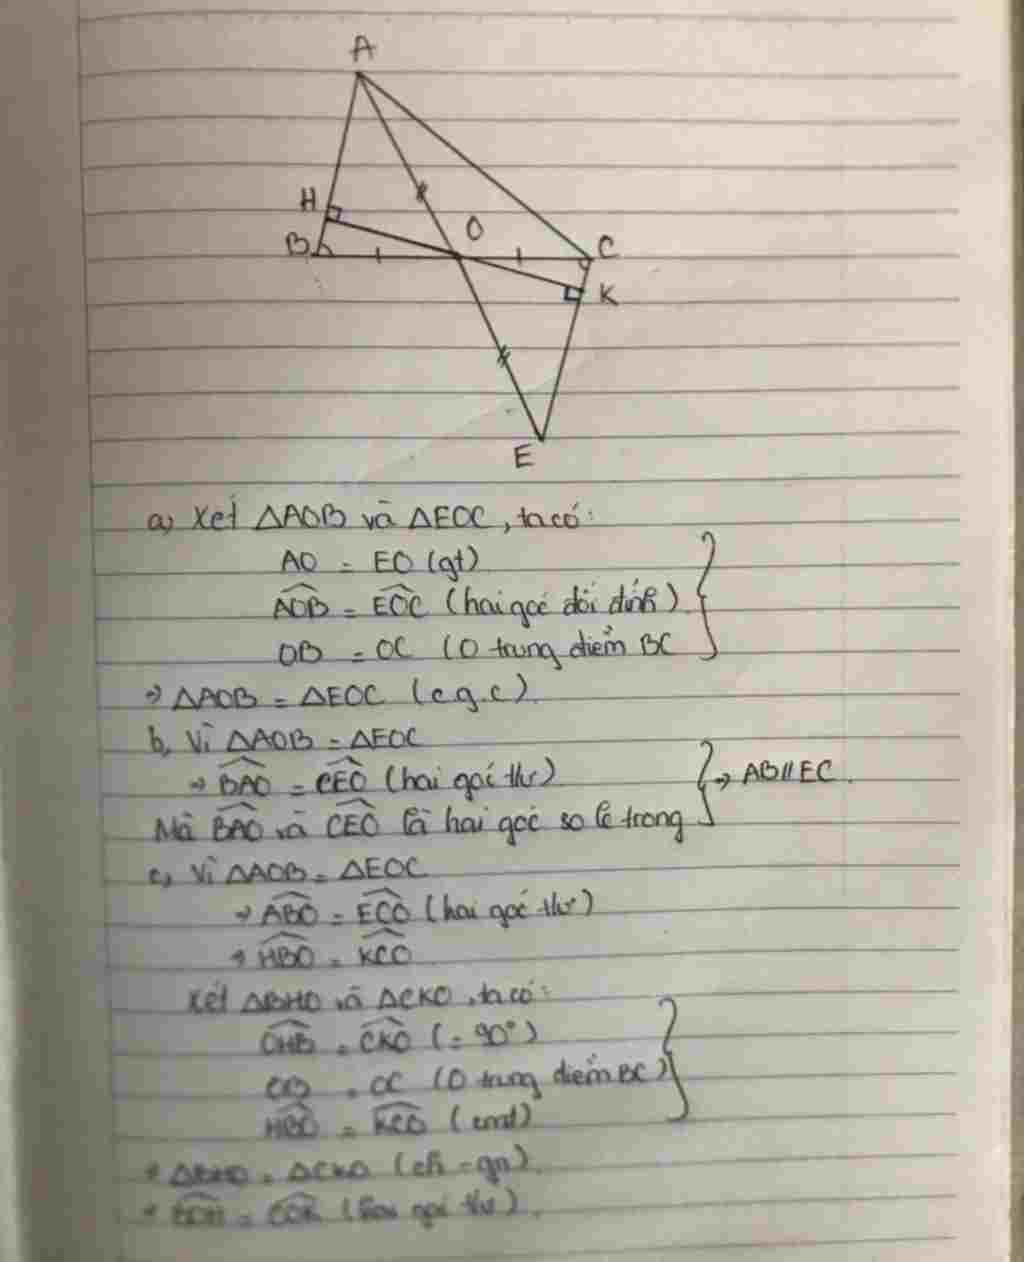 A
H
O
B
C
K
E
a, Xét ΔAOB và ΔEOC, ta có:
AO = EO (gt)
$\widehat{AOB}$ = $\widehat{EOC}$ (hai góc đối đỉnh)
OB = OC (O trung điểm BC
→ ΔAOB = ΔEOC (c.g.c).
b, Vì ΔAOB = ΔEOC
→ $\widehat{BAO}$ = $\widehat{CEO}$ (hai góc t/ư) → AB // EC.
Mà $\widehat{BAO}$ và $\widehat{CEO}$ là hai góc so le trong
c, Vì ΔAOB = ΔEOC
→ $\widehat{ABO}$ = $\widehat{ECO}$ (hai góc t/ư)
→ $\widehat{HBO}$ = $\widehat{KCO}$
Xét ΔBHO và ΔCKO, ta có:
$\widehat{OHB}$ = $\widehat{CKO}$ (= 90°)
OB = OC (O trung điểm BC)
$\widehat{HBO}$ = $\widehat{KCO}$ (cmt)
→ ΔBHO = ΔCKO (ch - gn).
→ = (hai góc t/ư).